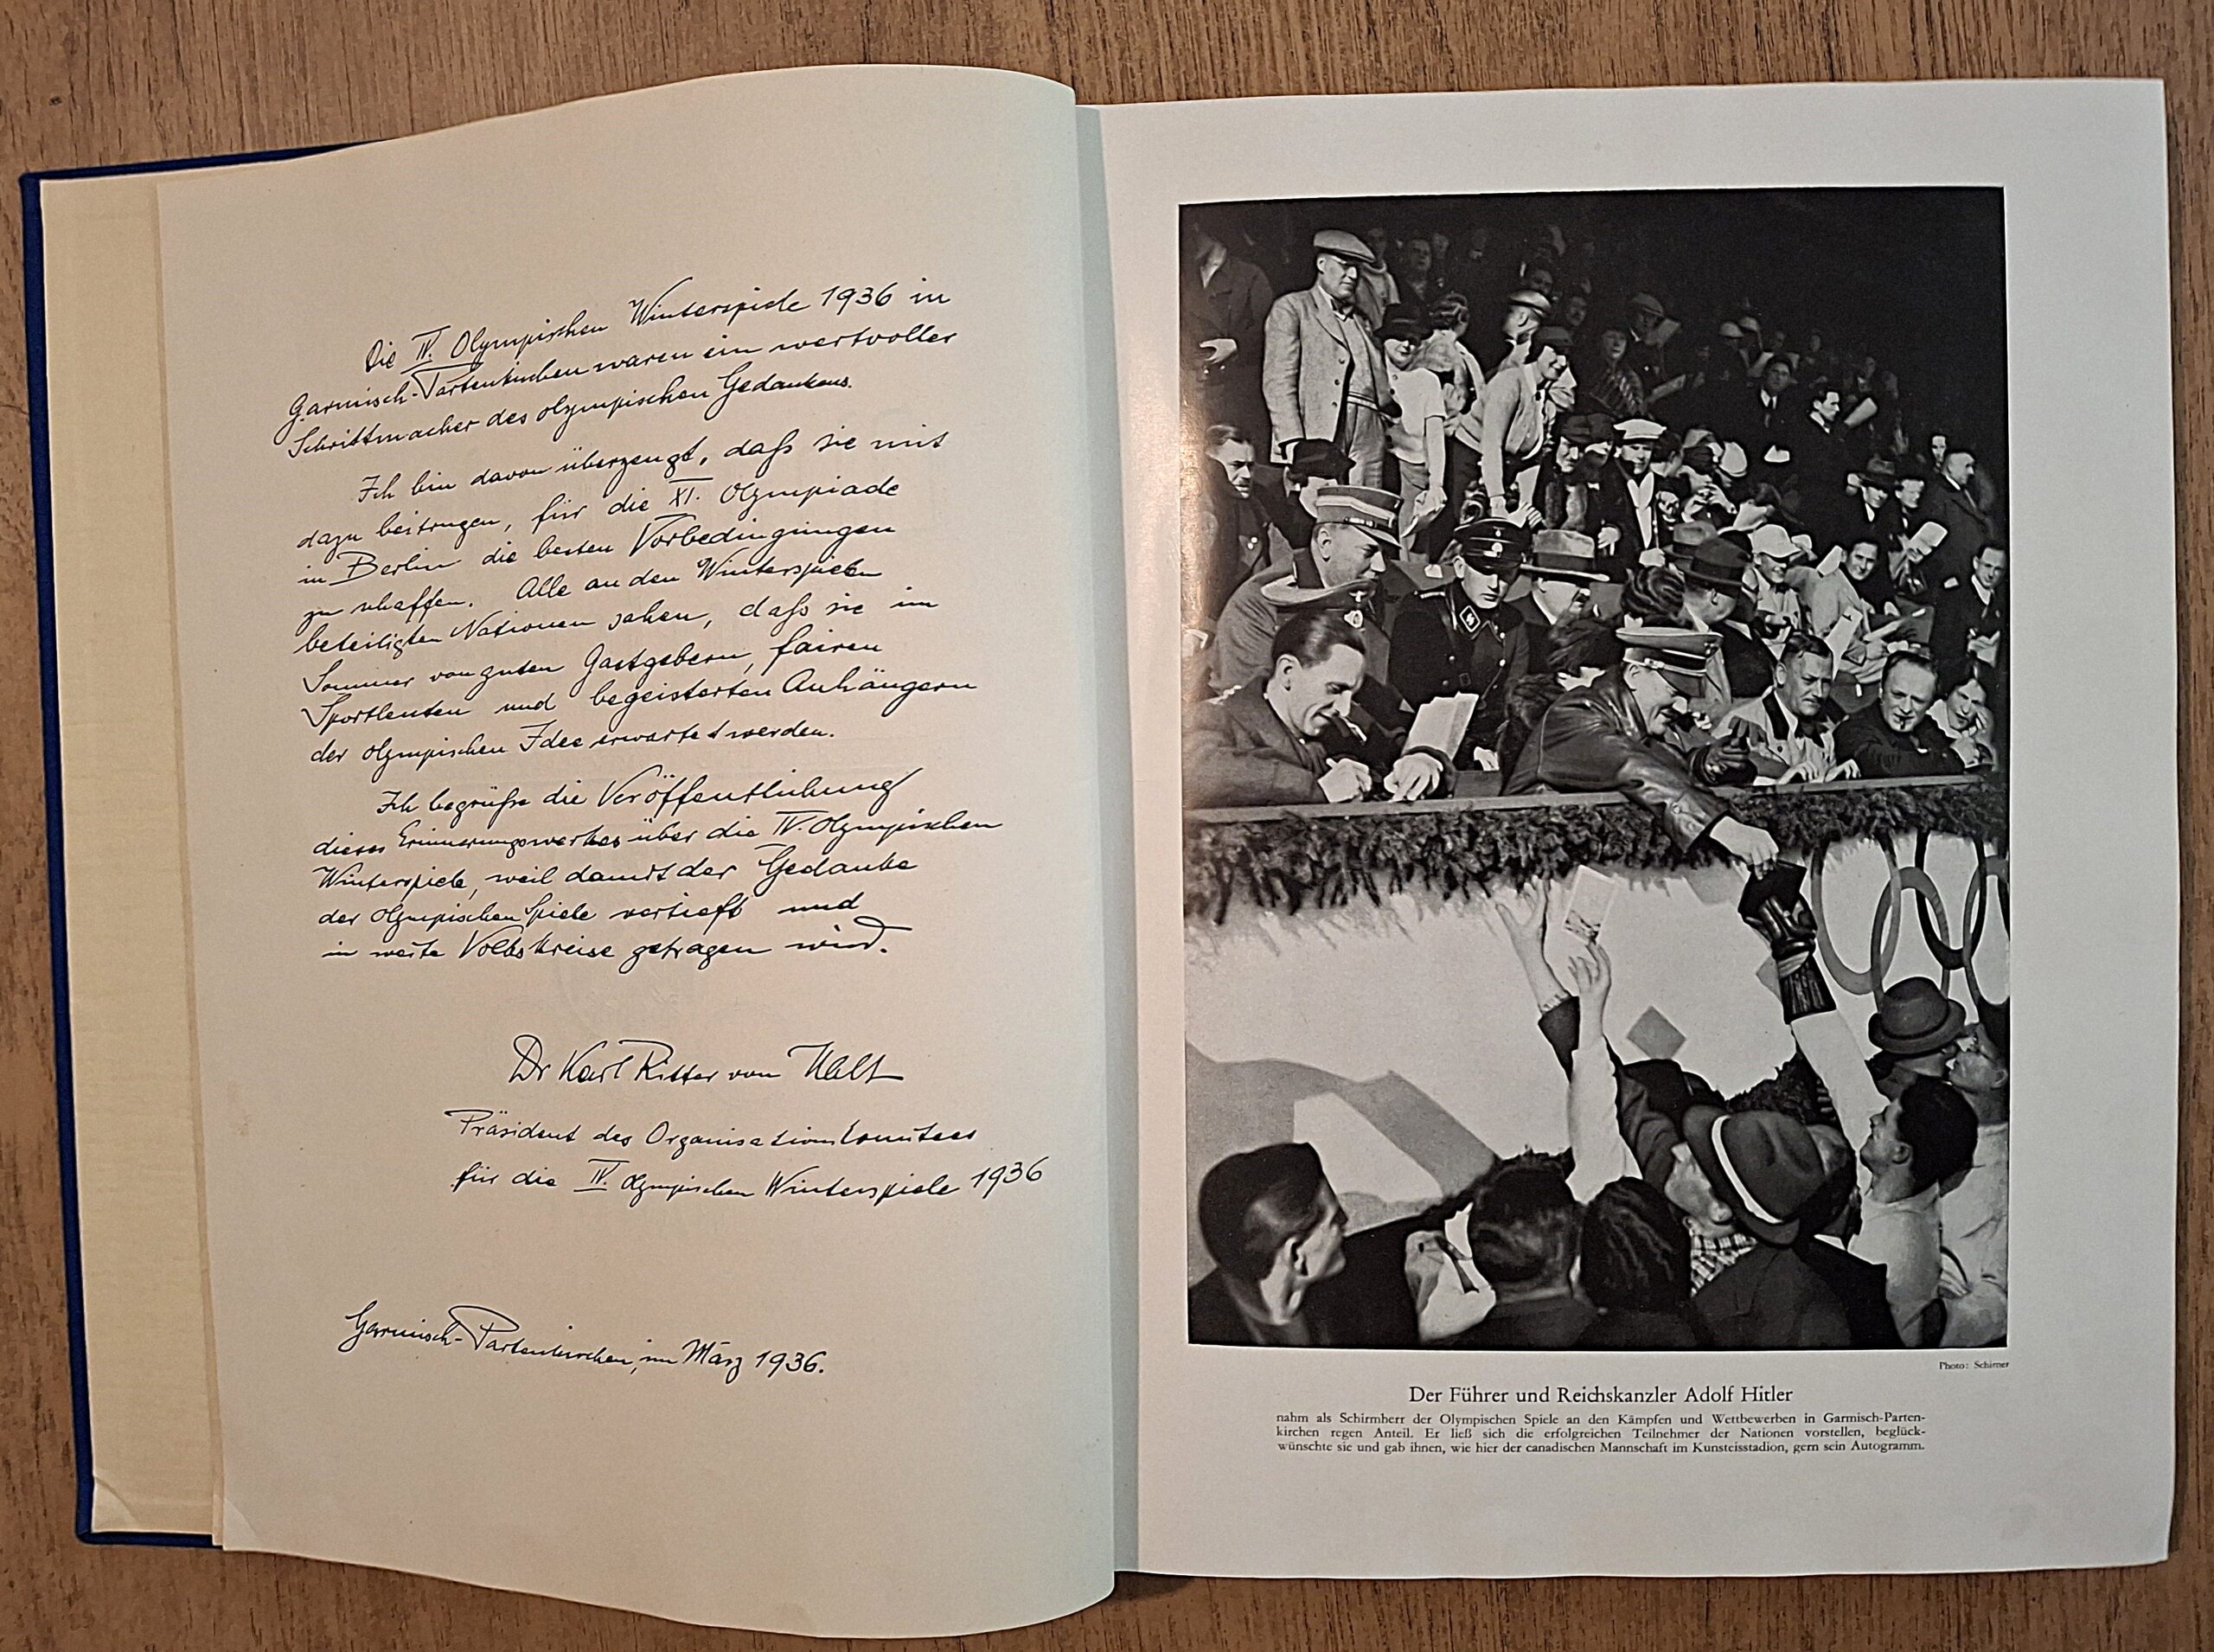 Die IV. Olympischen Winterspiele 1936 in
Garmisch-Partenkirchen waren ein wertvoller
Schrittmacher des olympischen Gedankens.
Ich bin davon überzeugt, daß sie mit
dazu beitrugen, für die XI. Olympiade
in Berlin die besten Vorbedingungen
zu schaffen. Alle an den Winterspielen
beteiligten Nationen sahen, daß sie im
Sommer von guten Gastgebern, fairen
Sportleuten und begeisterten Anhängern
der olympischen Idee erwartet werden.
Ich begrüße die Veröffentlichung
dieses Erinnerungswerkes über die IV. Olympischen
Winterspiele, weil damit der Gedanke
der olympischen Spiele vertieft und
in weite Volkskreise getragen wird.
Dr Karl Ritter von Halt
Präsident des Organisationskomitees
für die IV. Olympischen Winterspiele 1936
Garmisch-Partenkirchen, im März 1936.
Photo: Schirner
Der Führer und Reichskanzler Adolf Hitler
nahm als Schirmherr der Olympischen Spiele an den Kämpfen und Wettbewerben in Garmisch-Parten-
kirchen regen Anteil. Er ließ sich die erfolgreichen Teilnehmer der Nationen vorstellen, beglück-
wünschte sie und gab ihnen, wie hier der canadischen Mannschaft im Kunsteisstadion, gern sein Autogramm.